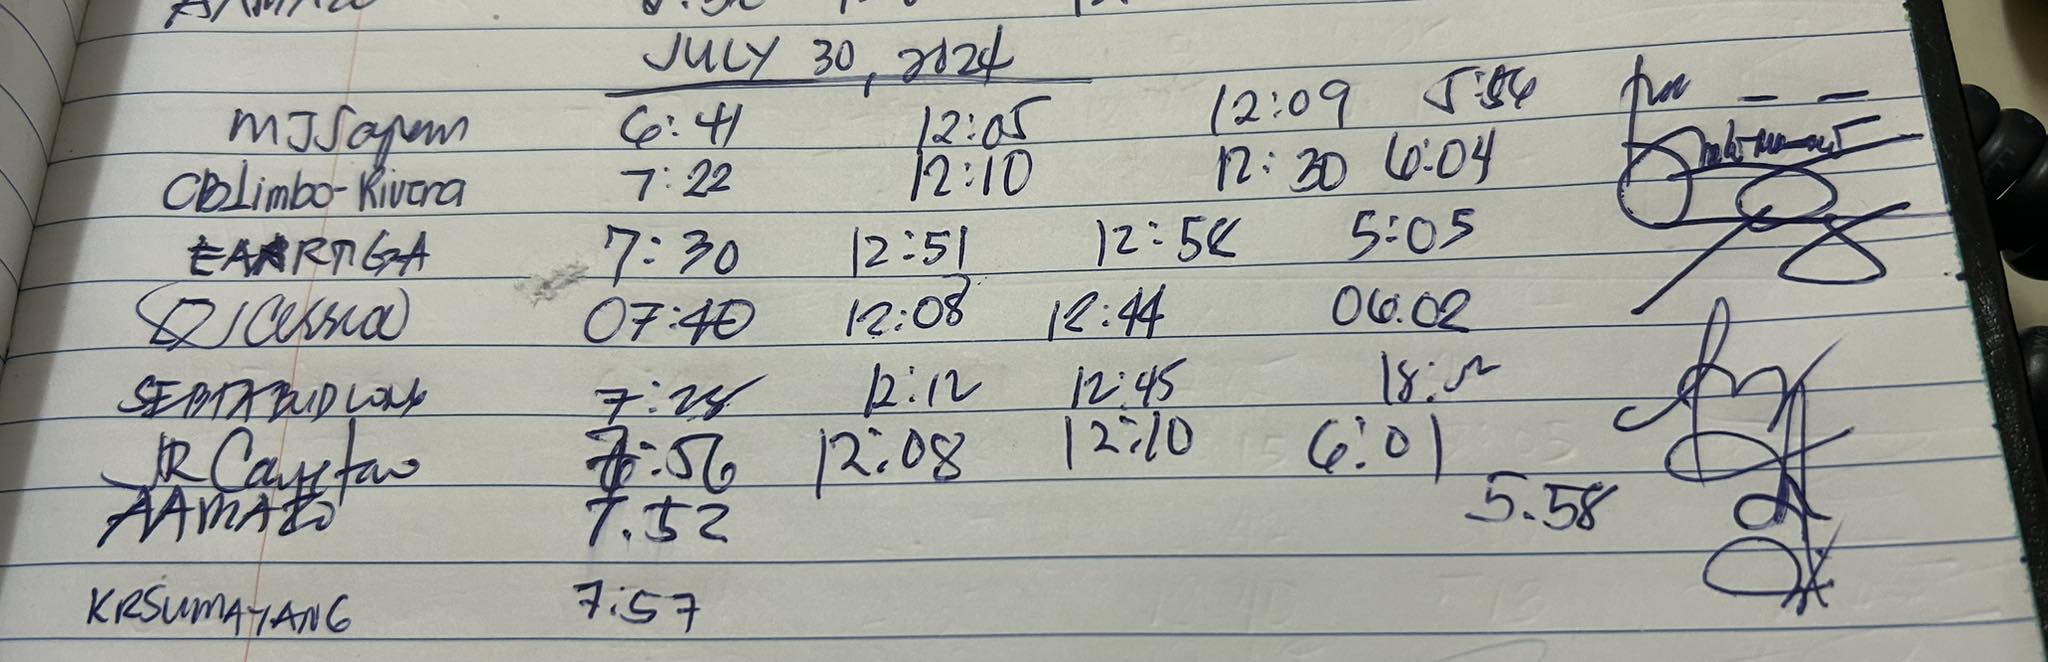 JULY 30, 2024
6:41 12:05 12:09 5:56
CBLimbo-Rivera 7:22 12:10 12:30 6:04
EAARTIGA 7:30 12:51 12:58 5:05
07:40 12:08 12:44 06:02
7:25 12:12 12:45
JR Cayetano 7:56 12:08 12:10 6:01
AAMAZO 7.52 5.58
KRSUMAYANG 7:57